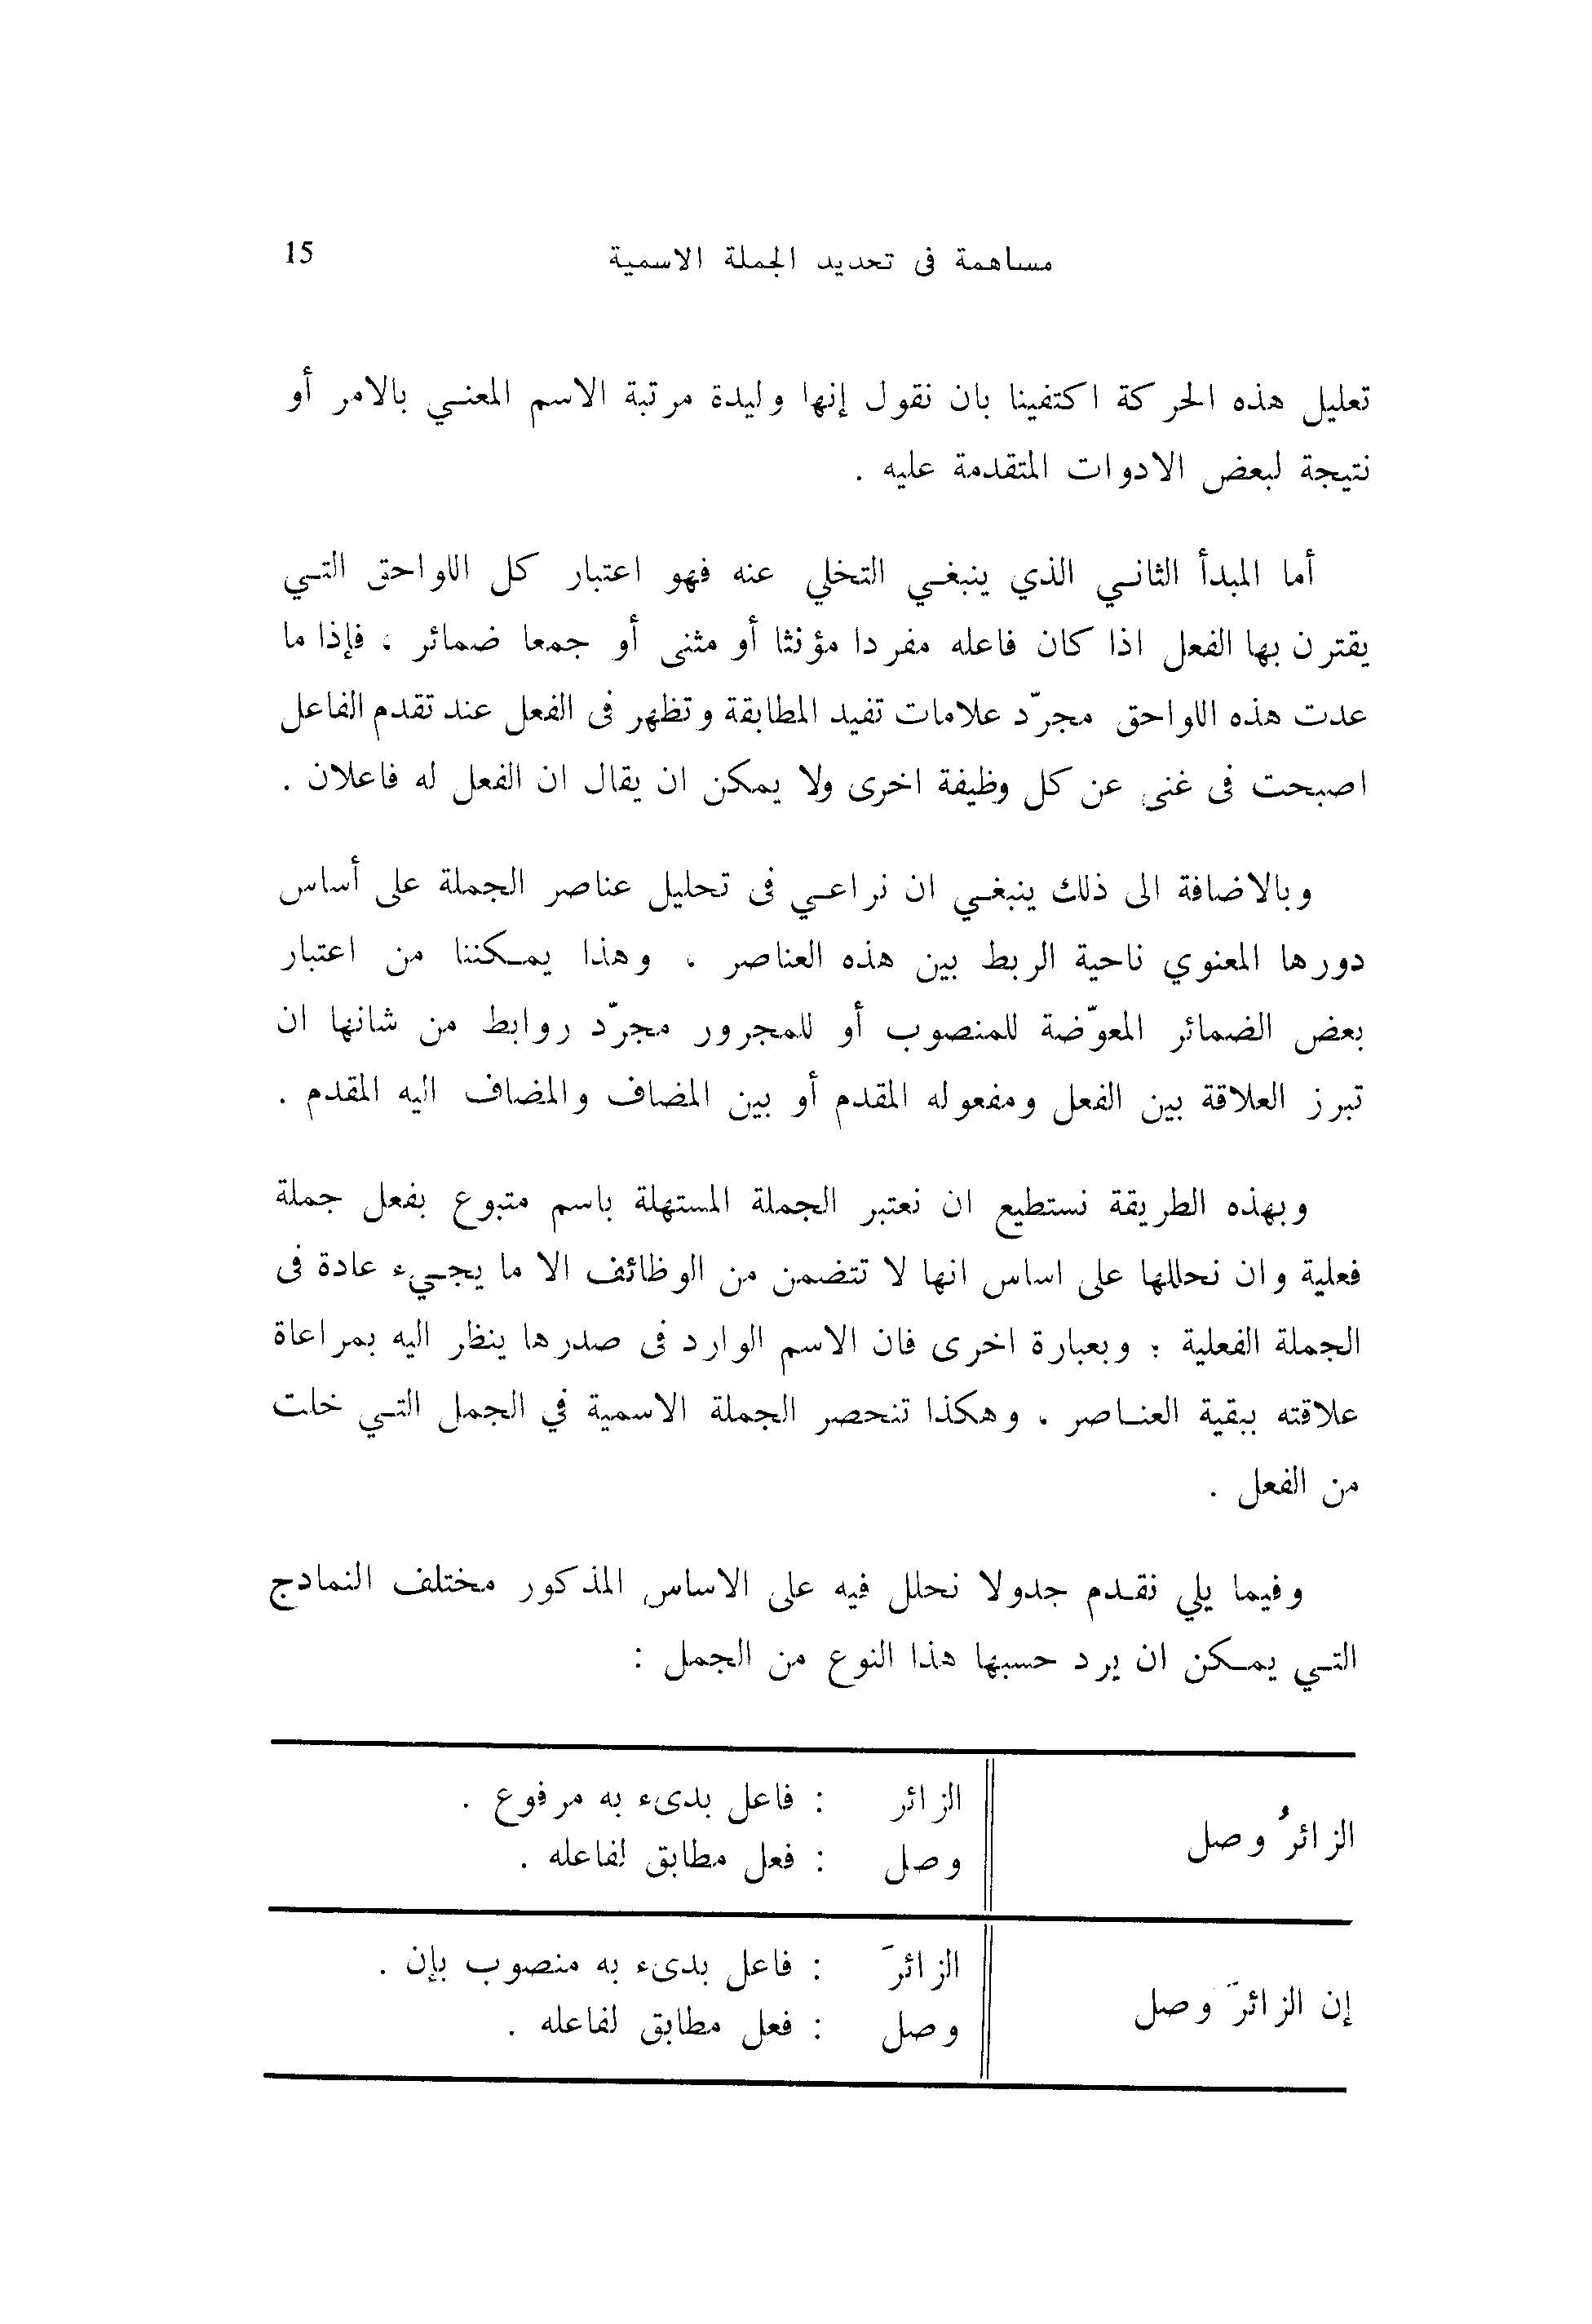 مساهمة فى تحديد الجملة الاسمية 15
تعليل هذه الحركة اكتفينا بان نقول إنها وليدة مرتبة الاسم المعني بالامر أو
نتيجة لبعض الادوات المتقدمة عليه .
أما المبدأ الثاني الذي ينبغي التخلي عنه فهو اعتبار كل اللواحق التي
يقترن بها الفعل اذا كان فاعله مفردا مؤنثا أو مثنى أو جمعا ضمائر ، فإذا ما
عدت هذه اللواحق مجرّد علامات تفيد المطابقة وتظهر فى الفعل عند تقدم الفاعل
اصبحت فى غنى عن كل وظيفة اخرى ولا يمكن ان يقال ان الفعل له فاعلان .
وبالاضافة الى ذلك ينبغي ان نراعي فى تحليل عناصر الجملة على أساس
دورها المعنوي ناحية الربط بين هذه العناصر ، وهذا يمكننا من اعتبار
بعض الضمائر المعوّضة للمنصوب أو للمجرور مجرّد روابط من شانها ان
تبرز العلاقة بين الفعل ومفعوله المقدم أو بين المضاف والمضاف اليه المقدم .
وبهذه الطريقة نستطيع ان نعتبر الجملة المستهلة باسم متبوع بفعل جملة
فعلية وان نحللها على اساس انها لا تتضمن من الوظائف الا ما يجيء عادة فى
الجملة الفعلية ؛ وبعبارة اخرى فان الاسم الوارد فى صدرها ينظر اليه بمراعاة
علاقته ببقية العناصر ، وهكذا تنحصر الجملة الاسمية في الجمل التي خلت
من الفعل .
وفيما يلي نقدم جدولا نحلل فيه على الاساس المذكور مختلف النمادج
التي يمكن ان يرد حسبها هذا النوع من الجمل :
الزائرُ وصل
الزائر : فاعل بدىء به مرفوع .
وصل : فعل مطابق لفاعله .
إن الزائرَ وصل
الزائرَ : فاعل بدىء به منصوب بإن .
وصل : فعل مطابق لفاعله .